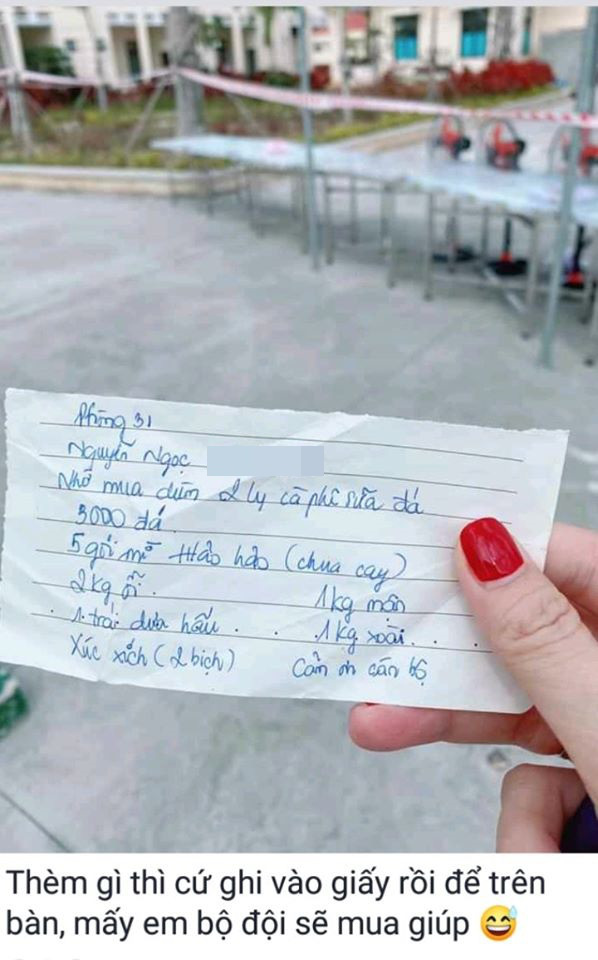 Phòng 31
Nguyễn Ngọc
Nhờ mua dùm 2 ly cà phê sữa đá
3000 đá
5 gói mì Hảo hảo (chua cay)
2kg ổi. 1kg mận
1 trái dưa hấu . . 1kg xoài . . .
Xúc xích (2 bịch) Cảm ơn cán bộ
Thèm gì thì cứ ghi vào giấy rồi để trên
bàn, mấy em bộ đội sẽ mua giúp 😅